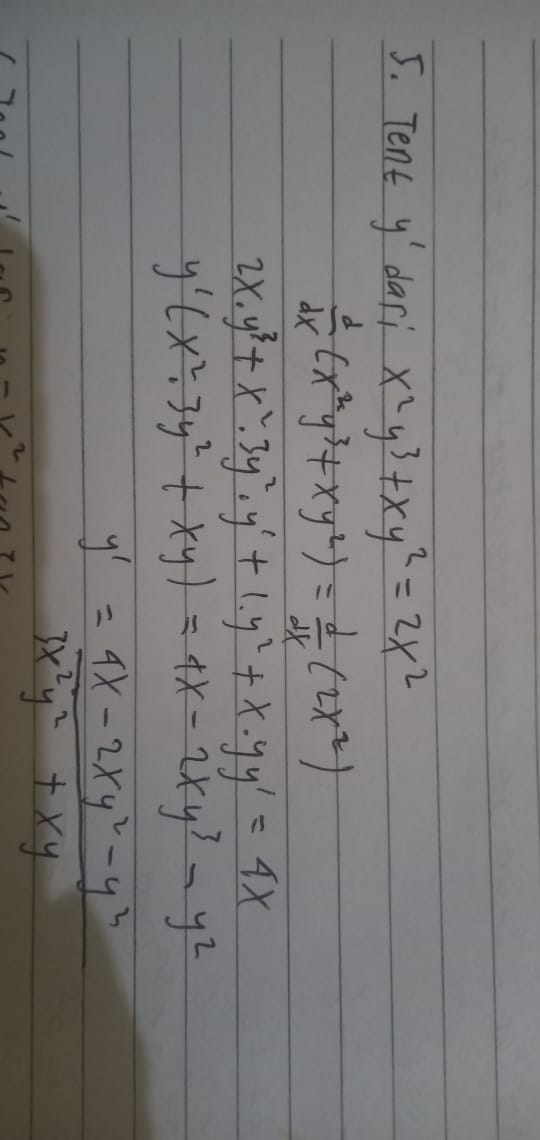 5. Tent y' dari x²y³+xy²=2x²
d/dx (x²y³+xy²) = d/dx (2x²)
2x.y³+x².3y².y' + 1.y² + x.yy' = 4x
y'(x².3y² + xy) = 4x - 2xy³ - y²
y' = 4x - 2xy² - y²
3x²y² + xy